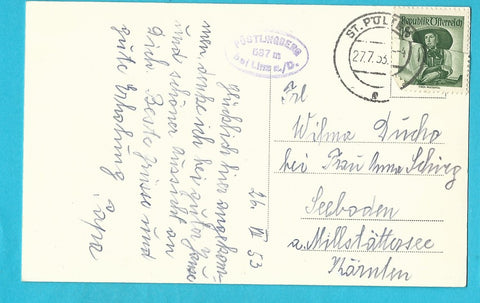 PÖSTLINGBERG
537 m
bei Linz a./D.
ST. PÖLTEN
27.7.53
Republik Österreich
26. VII 53
Glücklich hier angekom-
men, denke ich bei guter Jause
und schöner Aussicht an
Dich. Beste Grüsse und
gute Erholung
Papa
Frl
Wilma Ducho
bei Frau Anna Schirg
Seeboden
a. Millstättersee
Kärnten